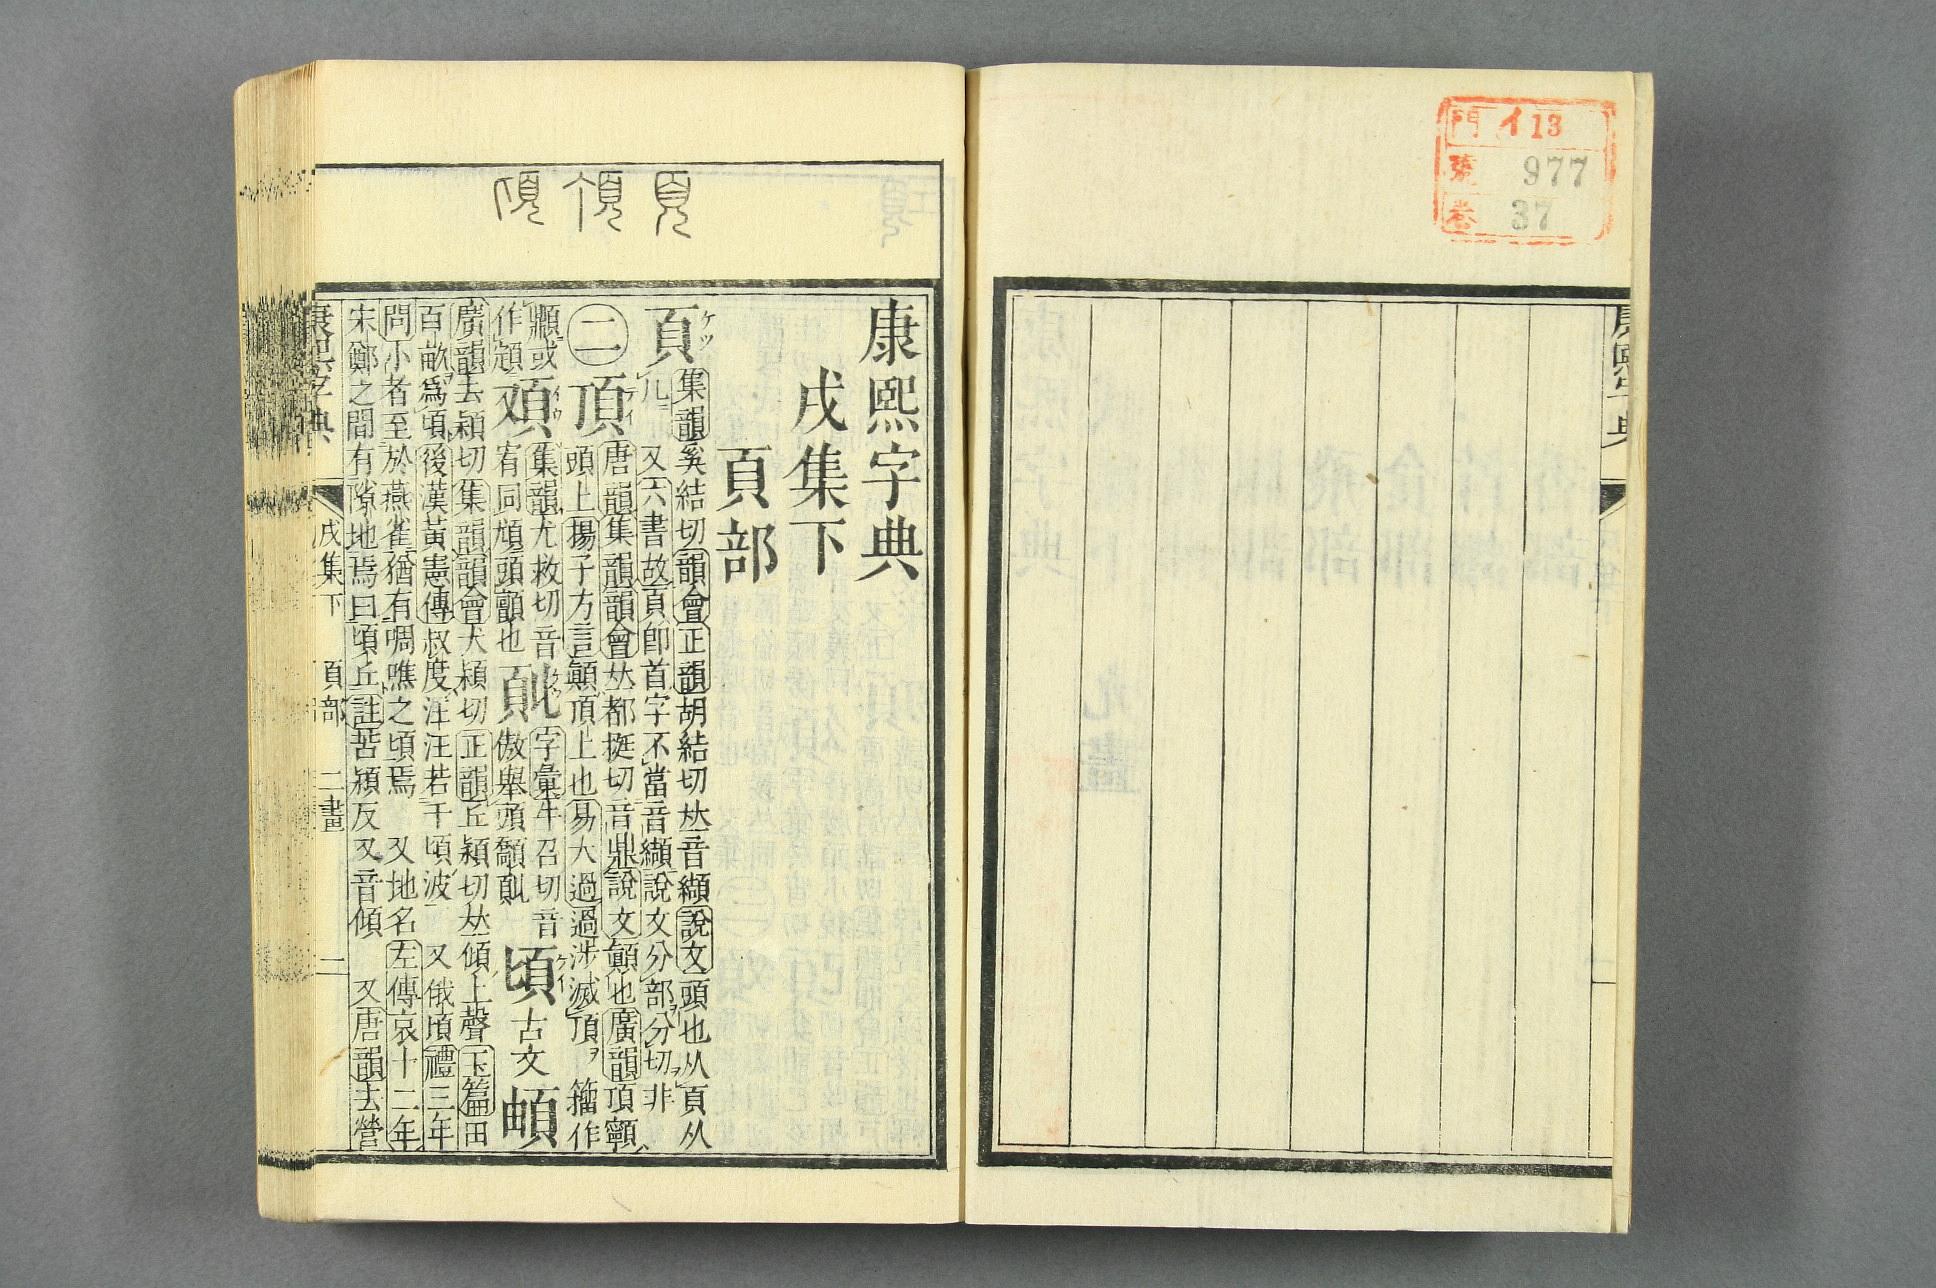 門 イ13
977
卷 37
康熙字典
康熙字典
戌集下
頁部
頁 ケツ
集韻奚結切韻會正韻胡結切𠀤音纈說文頭也从頁从
儿 又六書故頁卽首字不當音纈說文分部分切非
二 頂 テイ
唐韻集韻韻會𠀤都挺切音鼎說文顚也廣韻頂𩕳
頭上揚子方言顚頂上也易大過過涉滅頂ヲ籀作
或
作
集韻尤救切音
宥同頭顫也
字彙牛召切音
傲舉頭
頃 ケイ 古文
廣韻去潁切集韻韻會犬潁切正韻丘潁切𠀤傾上聲玉篇田
百畝爲頃後漢黃憲傳叔度汪汪若千頃波 又俄頃禮三年
問小者至於燕雀猶有啁噍之頃焉 又地名左傳哀十二年
宋鄭之閒有隙地焉曰頃丘註苦潁反又音傾 又唐韻去營
康熙字典 戌集下 頁部 二畫 二